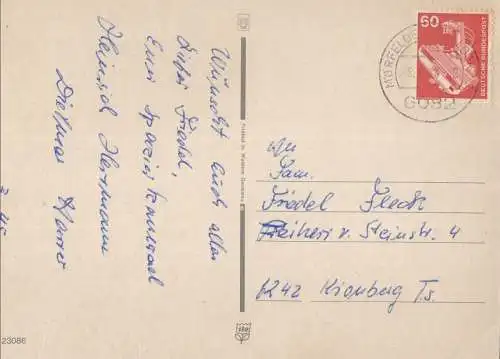 Wünscht Euch allen
Lieber Friedel,
Euer
Heinrich Herrmann
Dietmar
23086
Printed in Western Germany
60
DEUTSCHE BUNDESPOST
MÖRFELDEN
6082
An
Fam.
Friedel Fleck
Freiherr v. Steinstr. 4
6242 Kronberg Ts.